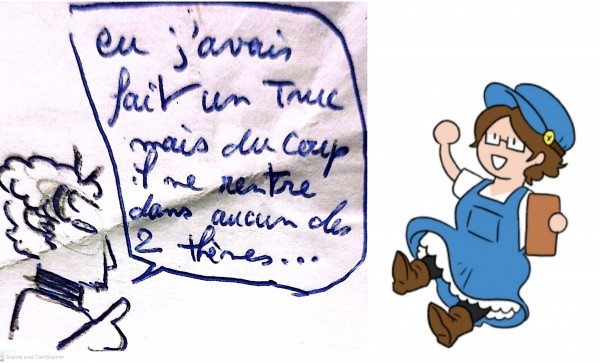 eu j'avais
fait un Truc
mais du coup
il ne rentre
dans aucun des
2 thèmes...
Scanné avec CamScanner